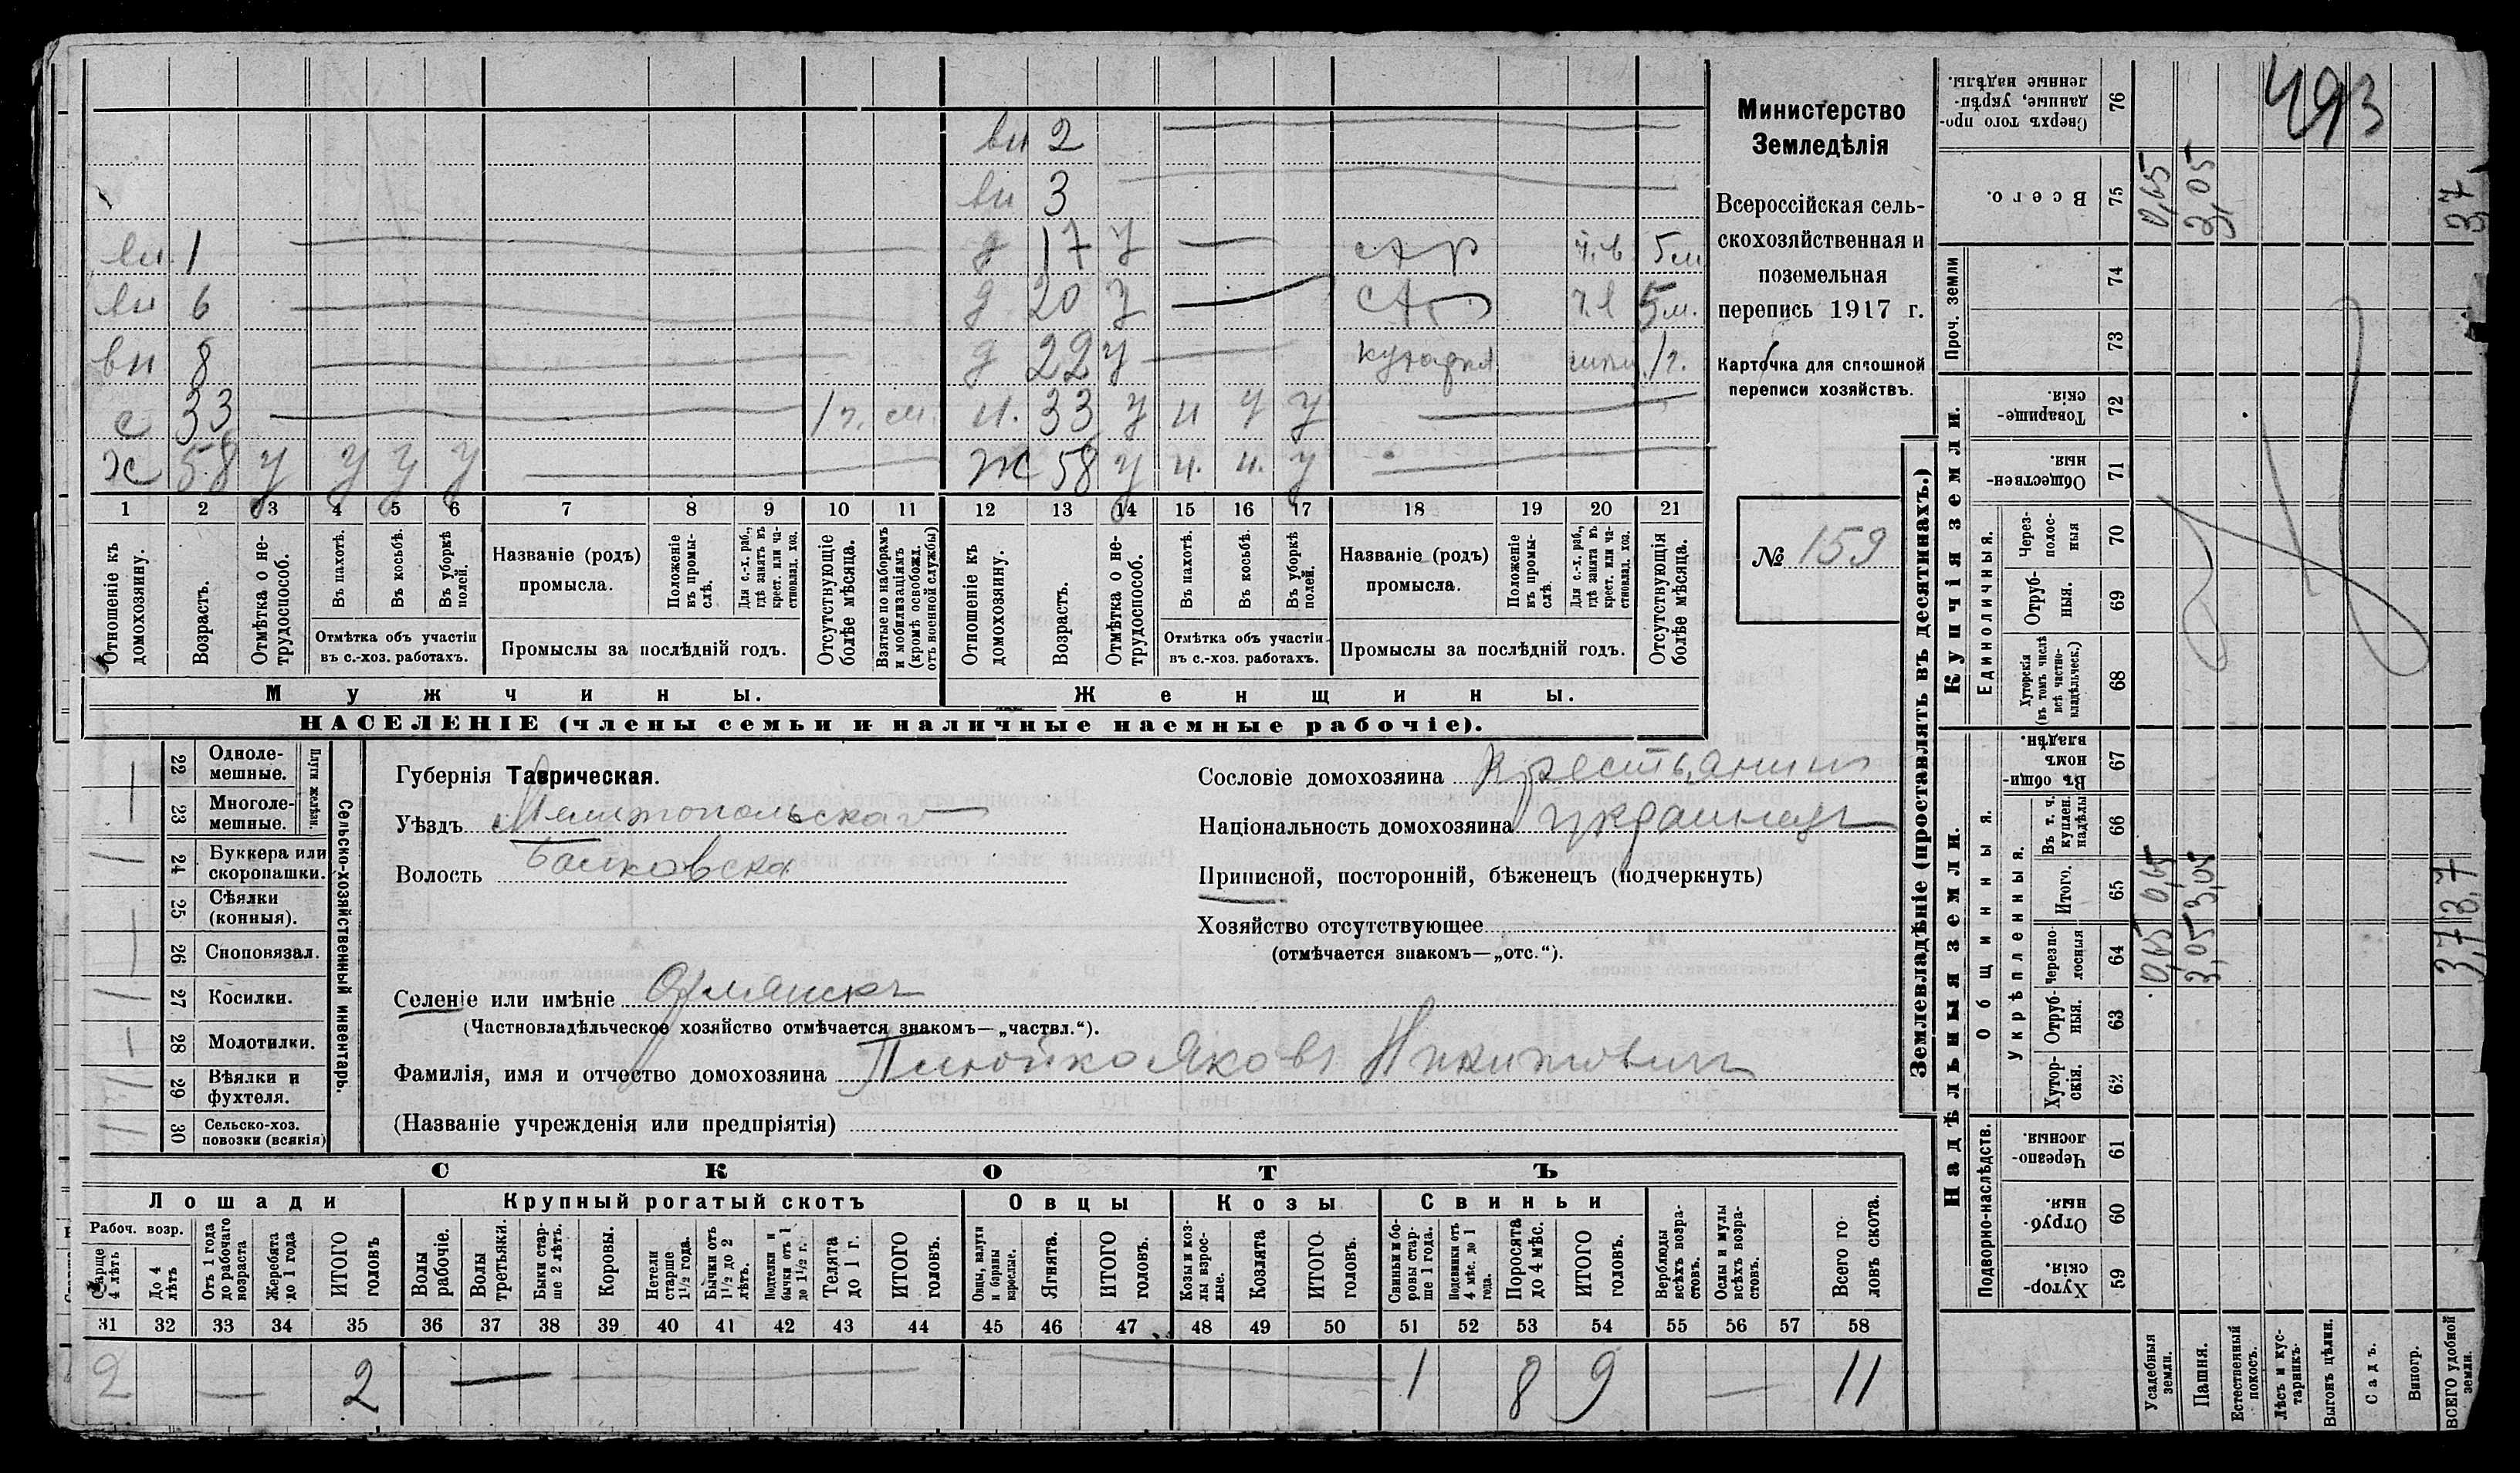 493
Министерство
Земледѣлія
Всероссійская сель-
скохозяйственная и
поземельная
перепись 1917 г.
Карточка для сплошной
переписи хозяйствъ.
№ 159
вн 2
вн 3
вн 1 д 17 у 5 м
вн 6 д 20 у 5 м.
вн 8 д 22 у кухарка 1 г.
с 33 1 г. н. 33 у н у у
х 58 у у у у ж 58 у н. н. у
1 2 3 4 5 6 7 8 9 10 11 12 13 14 15 16 17 18 19 20 21
Отношеніе къ домохозяину.
Возрастъ.
Отмѣтка о не-трудоспособ.
Въ пахотѣ.
Въ косьбѣ.
Въ уборкѣ полей.
Отмѣтка объ участіи въ с.-хоз. работахъ.
Названіе (родъ) промысла.
Положеніе въ промы-слѣ.
Для с.-х. раб., гдѣ занятъ въ крест. или ча-стновлад. хоз.
Промыслы за послѣдній годъ.
Отсутствующіе болѣе мѣсяца.
Взятые по наборамъ и мобилизаціямъ (кромѣ освобожд. отъ военной службы)
Отношеніе къ домохозяину.
Возрастъ.
Отмѣтка о не-трудоспособ.
Въ пахотѣ.
Въ косьбѣ.
Въ уборкѣ полей.
Отмѣтка объ участіи въ с.-хоз. работахъ.
Названіе (родъ) промысла.
Положеніе въ промы-слѣ.
Для с.-х. раб., гдѣ занята въ крест. или ча-стновлад. хоз.
Промыслы за послѣдній годъ.
Отсутствующія болѣе мѣсяца.
Мужчины. Женщины.
НАСЕЛЕНІЕ (члены семьи и наличные наемные рабочіе).
Сельско-хозяйственный инвентарь.
Плуги желѣзн.
22 Одноле-мешные.
23 Многоле-мешные.
24 Буккера или скоропашки.
25 Сѣялки (конныя).
26 Сноповязал.
27 Косилки.
28 Молотилки.
29 Вѣялки и фухтеля.
30 Сельско-хоз. повозки (всякія)
Губернія Таврическая.
Уѣздъ Мелитопольская
Волость Балковска
Сословіе домохозяина Крестьянинъ
Національность домохозяина украинецъ
Приписной, посторонній, бѣженецъ (подчеркнуть)
Хозяйство отсутствующее
(отмѣчается знакомъ—„отс.“).
Селеніе или имѣніе Орлянскъ
(Частновладѣльческое хозяйство отмѣчается знакомъ—„частвл.“).
Фамилія, имя и отчество домохозяина Яковъ Никитовичъ
(Названіе учрежденія или предпріятія)
СКОТЪ
Лошади Крупный рогатый скотъ Овцы Козы Свиньи
Рабоч. возр.
Старше 4 лѣтъ
До 4 лѣтъ
Отъ 1 года до рабочаго возраста
Жеребята до 1 года
ИТОГО головъ
Волы рабочіе.
Волы третьяки.
Быки стар-ше 2 лѣтъ.
Коровы.
Нетели старше 1 1/2 года.
Бычки отъ 1 1/2 до 2 лѣтъ.
Подтелки и бычки отъ 1 до 1 1/2 г.
Телята до 1 г.
ИТОГО головъ.
Овцы, валухи и бараны взрослые.
Ягнята.
ИТОГО головъ.
Козы и коз-лы взрос-лые.
Козлята
ИТОГО головъ.
Свиньи и бо-ровы стар-ше 1 года.
Подсвинки отъ 4 мѣс. до 1 года.
Поросята до 4 мѣс.
ИТОГО головъ.
Верблюды всѣхъ возра-стовъ.
Ослы и мулы всѣхъ возра-стовъ.
Всего го-ловъ скота.
31 32 33 34 35 36 37 38 39 40 41 42 43 44 45 46 47 48 49 50 51 52 53 54 55 56 57 58
2 — 2 — 1 8 9 — 11
Землевладѣніе (проставлять въ десятинахъ.)
Надѣльныя земли. Купчія земли. Проч. земли
Подворно-наслѣдств.
Общинныя.
Укрѣпленныя.
Единоличныя.
59 Хутор-скія.
60 Отруб-ныя.
61 Черезпо-лосныя
62 Хутор-скія.
63 Отруб-ныя.
64 Черезпо-лосныя 0,65 3,05 3,7
65 Итого. 0,65 3,05 3,7
66 Въ т. ч. куплен. надѣлы
67 Въ общин-номъ владѣн.
68 Хуторскія (въ томъ числѣ всѣ частно-владѣльческ.)
69 Отруб-ныя.
70 Через-полос-ныя
71 Обществен-ныя.
72 Товарище-скія
73
74
75 Всего. 0,65 3,05 3,7
76 Сверхъ того про-данные, укрѣп-ленные надѣлы.
Усадебныя земли.
Пашня.
Естественный покосъ.
Лѣсъ и кус-тарникъ.
Выгонъ цѣлин.
Садъ.
Виногр.
ВСЕГО удобной земли.